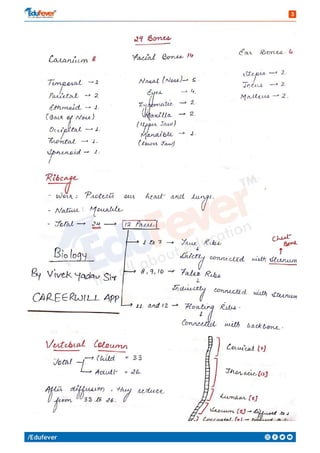 Edufever
3
29 Bones
Caranium 8
Temporal → 2
Parietal → 2
Ethmoid → 1.
(Back of Nose)
Occipital → 1.
Frontal → 1.
Sphenoid → 1.
Facial Bones 14
Nasal (Nose) → 5
Eyes → 4.
Zygomatic → 2
Maxilla → 2
(Upper Jaw)
Mandible → 1.
(Lower Jaw)
Ear Bones 6
Stapes → 2
Incus → 2
Malleus → 2.
Ribcage
- Work : Protects our heart and lungs.
- Nature : Movable
- Total → 24 → 12 Pairs
1 to 7 → True Ribs
Directly connected with sternum
Chest Bone
8, 9, 10 → False Ribs
Indirectly connected with sternum
11 and 12 → Floating Ribs.
Connected with backbone.
Biology
By Vivek Yadav Sir
CAREERWILL APP
Vertebral Coloumn
Total → Child = 33
→ Adult = 26.
After diffusion, they reduce
from 33 to 26.
Cervical [7]
Thoracic [12]
Lumbar [5]
Sacrum [5]
/Edufever